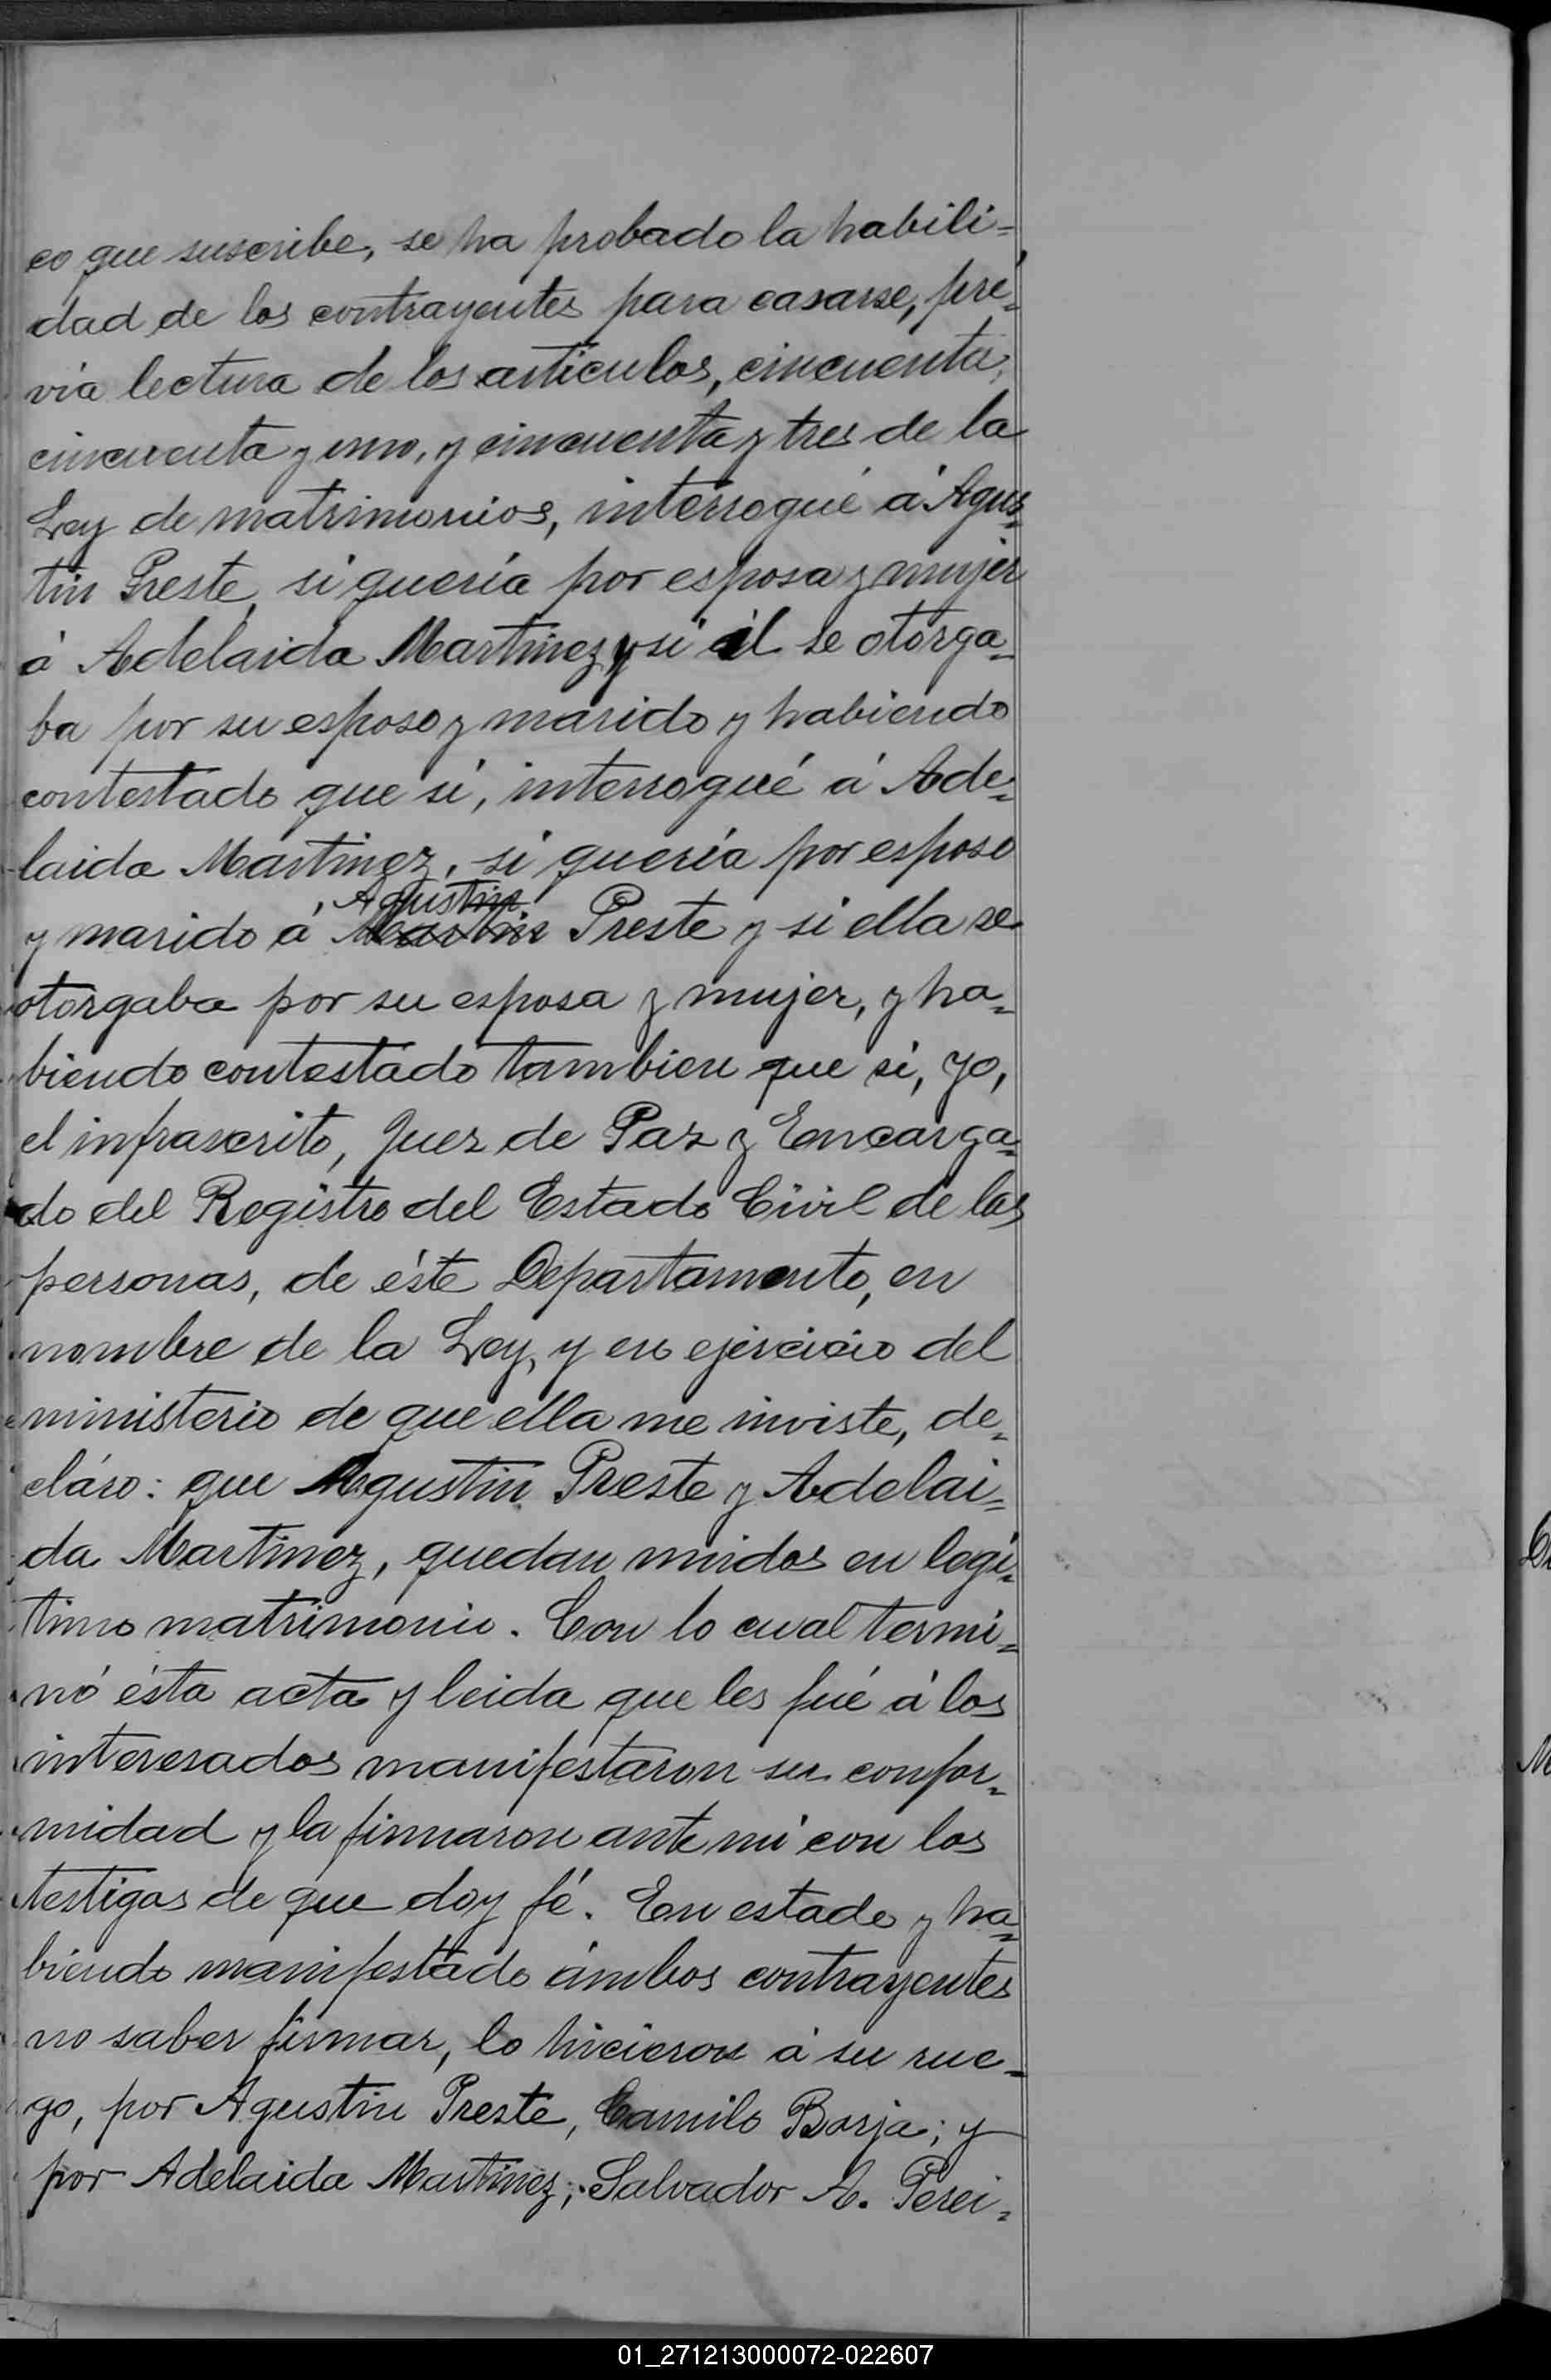 co que suscribe, se ha probado la habili=
dad de los contrayentes para casarse, pré-
via lectura de los artículos, cincuenta,
cincuenta y uno, y cincuenta y tres de la
Ley de matrimonios, interrogué á Agus-
tin Preste, si quería por esposa y mujer
á Adelaida Martinez y si él se otorga-
ba por su esposo y marido y habiendo
contestado que sí, interrogué á Ade-
laida Martinez, si quería por esposo
Agustin
y marido á Martin Preste y si ella se
otorgaba por su esposa y mujer, y ha-
biendo contestado tambien que si, yo,
el infrascrito, Juez de Paz y Encarga-
do del Registro del Estado Civil de las
personas, de éste Departamento, en
nombre de la Ley, y en ejercicio del
ministerio de que ella me inviste, de-
cláro: que Agustin Preste y Adelai-
da Martinez, quedan unidos en legí-
timo matrimonio. Con lo cual termi-
nó ésta acta y leida que les fué á los
interesados manifestaron su confor-
midad y la firmaron ante mi con los
testigos de que doy fé. En estado y ha-
biendo manifestado ámbos contrayentes
no saber firmar, lo hicieron á su rue-
go, por Agustin Preste, Camilo Borja; y
por Adelaida Martinez, Salvador A. Perei-
01_271213000072-022607